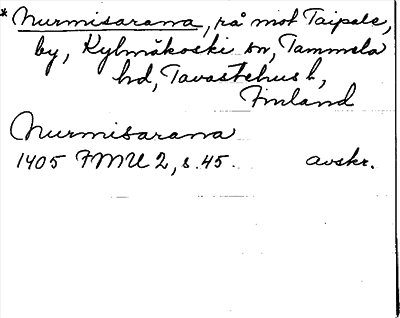 * Nurmisarana, rå mot Taipale,
by, Kylmäkoski sn, Tammela
hd, Tavastehus l,
Finland
Nurmisarana
1405 FMU 2, s. 45. avskr.